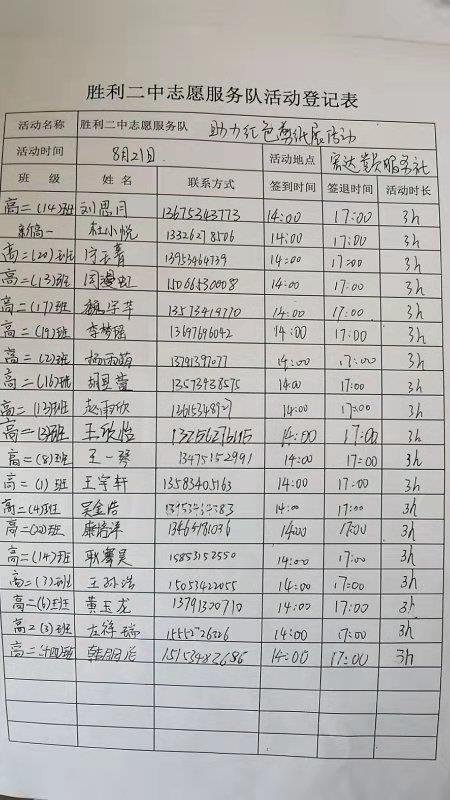 胜利二中志愿服务队活动登记表
活动名称 胜利二中志愿服务队 助力红色剪纸展活动
活动时间 8月21日. 活动地点 党员服务社
班 级 姓 名 联系方式 签到时间 签退时间 活动时长
高二(14)班 刘思月 13675343773 14:00 17:00 3h
新高一 杜小悦 13326278506 14:00 17:00 3h
高二(20)班 13953464739 14:00 17:00 3h
高二(13)班 周漫虹 15066530008 14:00 17:00 3h
高二(17)班 魏宇芊 13573419770 14:00 17:00 3h
高二(19)班 李梦瑶 13697696042 14:00 17:00 3h
高二(2)班 杨雨萌 13791397077 14:00 17:00 3h
高二(16)班 胡昱萱 13573938575 14:00 17:00 3h
高二(13)班 赵雨欣 14:00 17:00 3h
高二(3)班 王欣怡 14:00 17:00 3h
高二(8)班 王一琴 13475152991 14:00 17:00 3h
高二(1)班 王宇轩 13583405163 14:00 17:00 3h
高二(4)班 吴金浩 14:00 17:00 3h
高二(22)班 13465781036 14:00 17:00 3h
高二(14)班 耿馨昊 15853152550 14:00 17:00 3h
高二(7)班 王孙浩 15053422055 14:00 17:00 3h
高二(6)班 黄玉龙 13791320710 14:00 17:00 3h
高二(3)班 左祥瑞 15552726326 14:00 17:00 3h
高二十四班 15153482686 14:00 17:00 3h